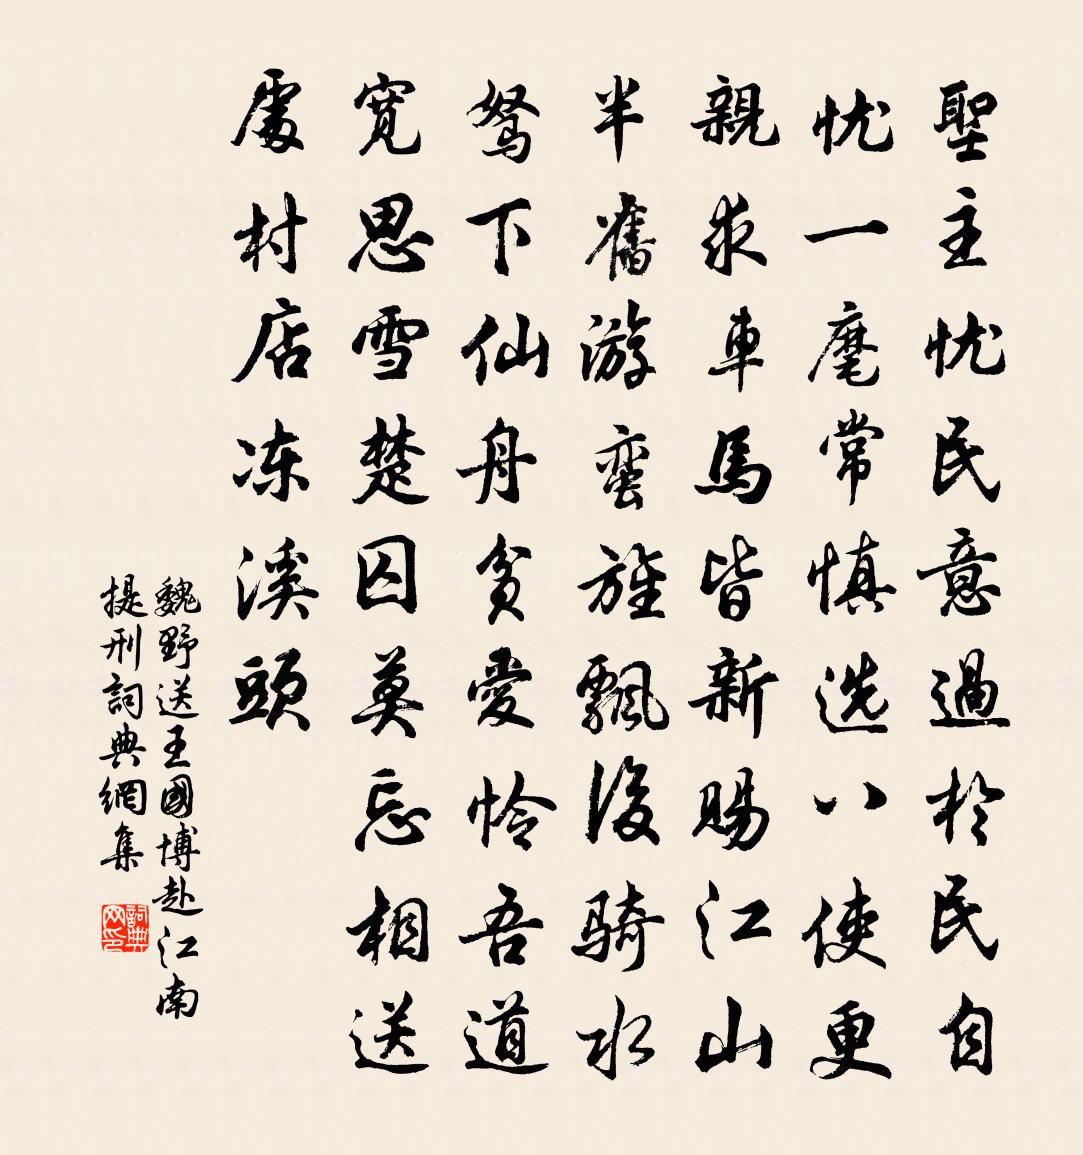 聖主忧民意過於民自
忧一麾常慎选八使更
親求車馬皆新賜江山
半舊游蛮旌飄後騎水
驽下仙舟贫愛怜吾道
寬思雪楚囚莫忘相送
處村店冻溪頭
魏野送王國博赴江南
提刑詞典網集
詞典网印